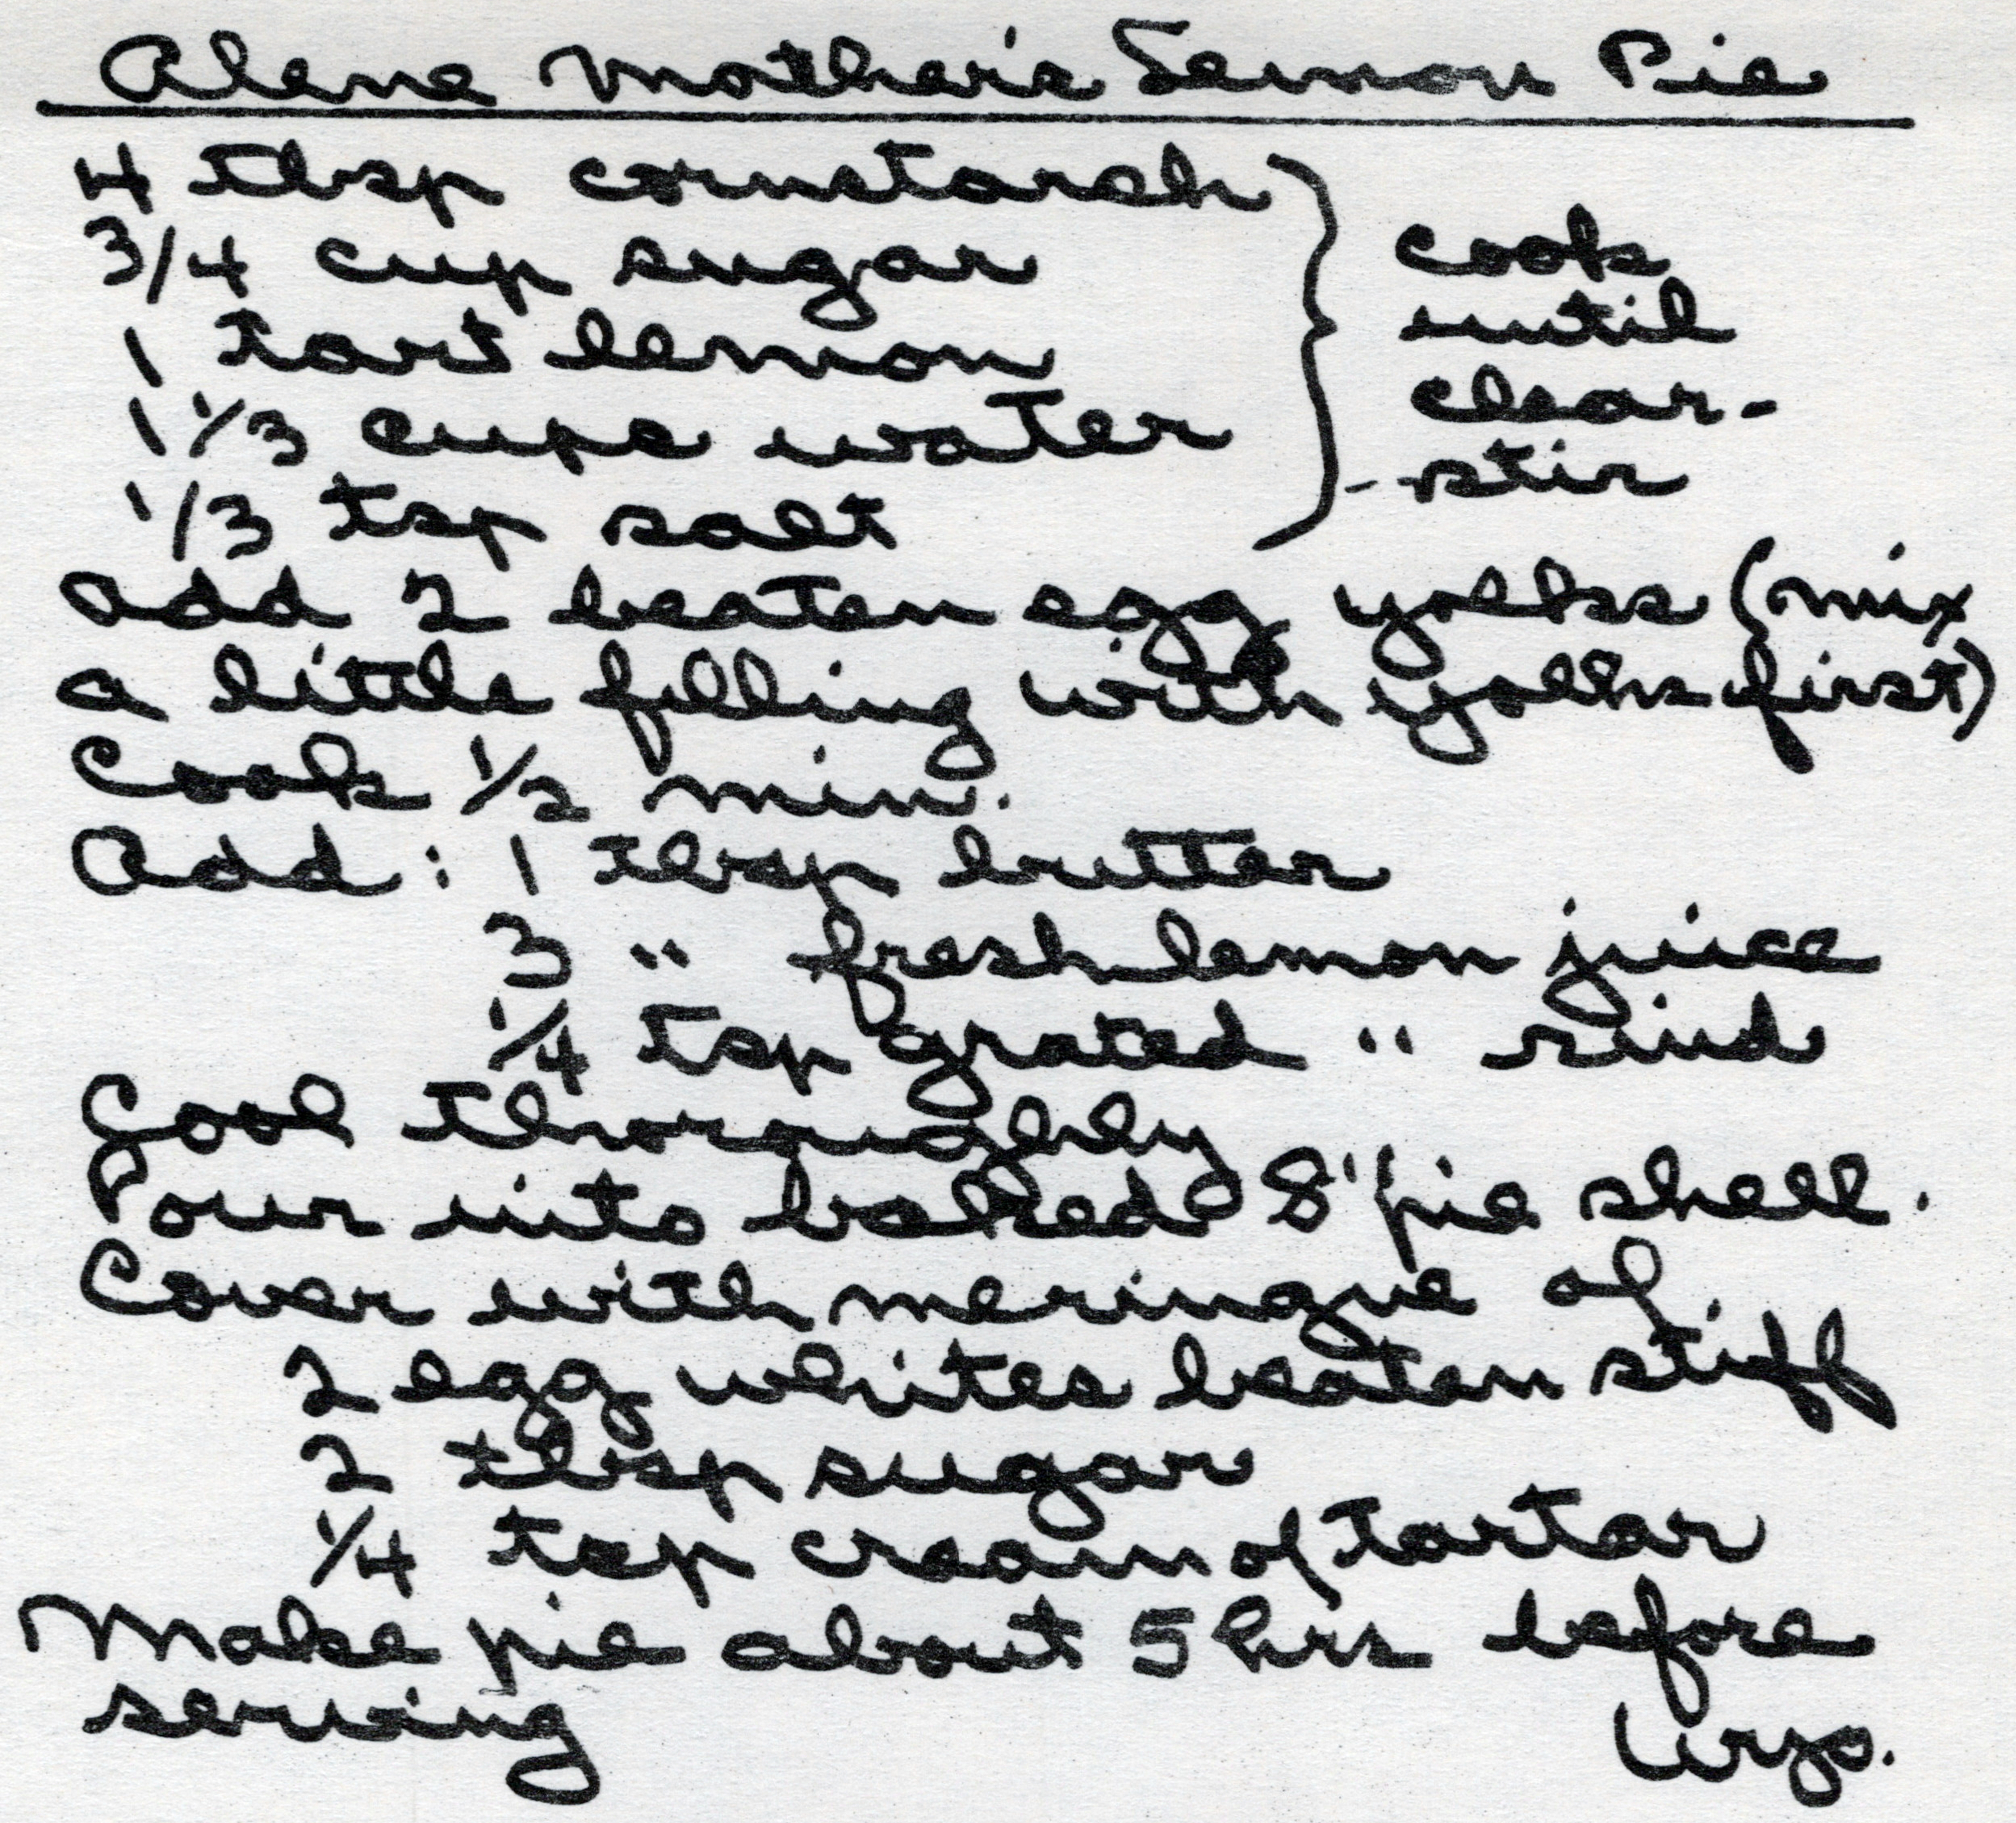 Alene Mother's Lemon Pie
4 tbsp cornstarch
3/4 cup sugar
1 tart lemon
1 1/3 cups water
1/3 tsp salt
cook
until
clear-
--stir
Add 2 beaten egg yolks (mix
a little filling with yolks first)
Cook 1/2 min.
Add: 1 tbsp butter
3 " fresh lemon juice
1/4 tsp grated " rind
Cool thoroughly
Pour into baked 8" pie shell.
Cover with meringue of
2 egg whites beaten stiff
2 tbsp sugar
1/4 tsp cream of tartar
Make pie about 5 hrs before
serving
Wyo.